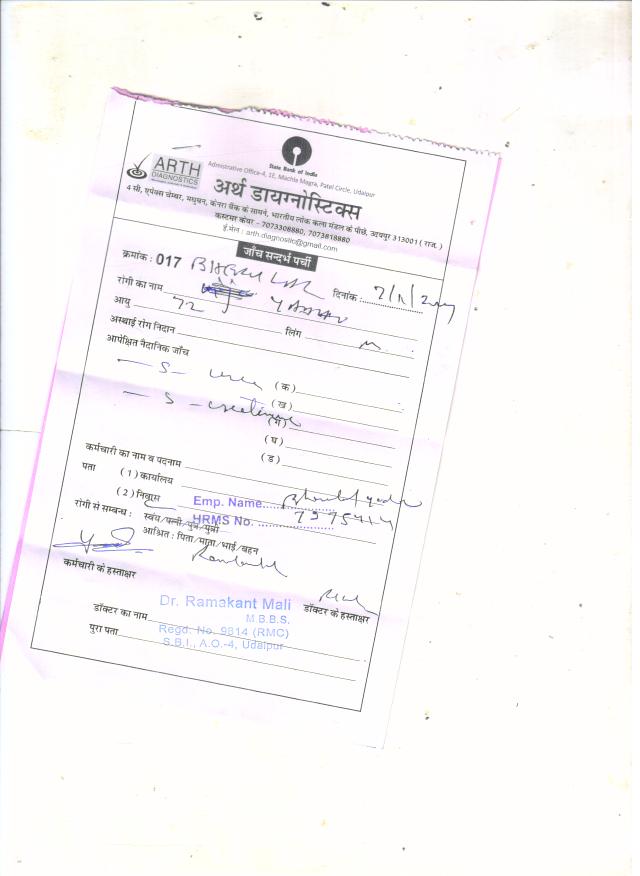 State Bank of India
Administrative Office-4, 1E, Machla Magra, Patel Circle, Udaipur
ARTH
DIAGNOSTICS
अर्थ डायग्नोस्टिक्स
4 सी, एपेक्स चेम्बर, मधुबन, केनरा बैंक के सामने, भारतीय लोक कला मंडल के पीछे, उदयपुर 313001 ( राज. )
कस्टमर केयर - 7073308880, 7073818880
ई.मेल : arth.diagnostic@gmail.com
जाँच सन्दर्भ पर्ची
क्रमांक : 017
दिनांक :
रोगी का नाम
आयु 72 लिंग M
अस्थाई रोग निदान
आपेक्षित नैदानिक जाँच
- S- urea ( क )
( ख )
- S - creatinine ( ग )
( घ )
( ड )
कर्मचारी का नाम व पदनाम
पता ( 1 ) कार्यालय
( 2 ) निवास
Emp. Name
HRMS No.
रोगी से सम्बन्ध : स्वयं/पत्नी/पुत्र/पुत्री
आश्रित : पिता/माता/भाई/बहन
कर्मचारी के हस्ताक्षर
डॉक्टर के हस्ताक्षर
Dr. Ramakant Mali
M.B.B.S.
डॉक्टर का नाम
Regd. No. 9814 (RMC)
पुरा पता
S.B.I., A.O.-4, Udaipur